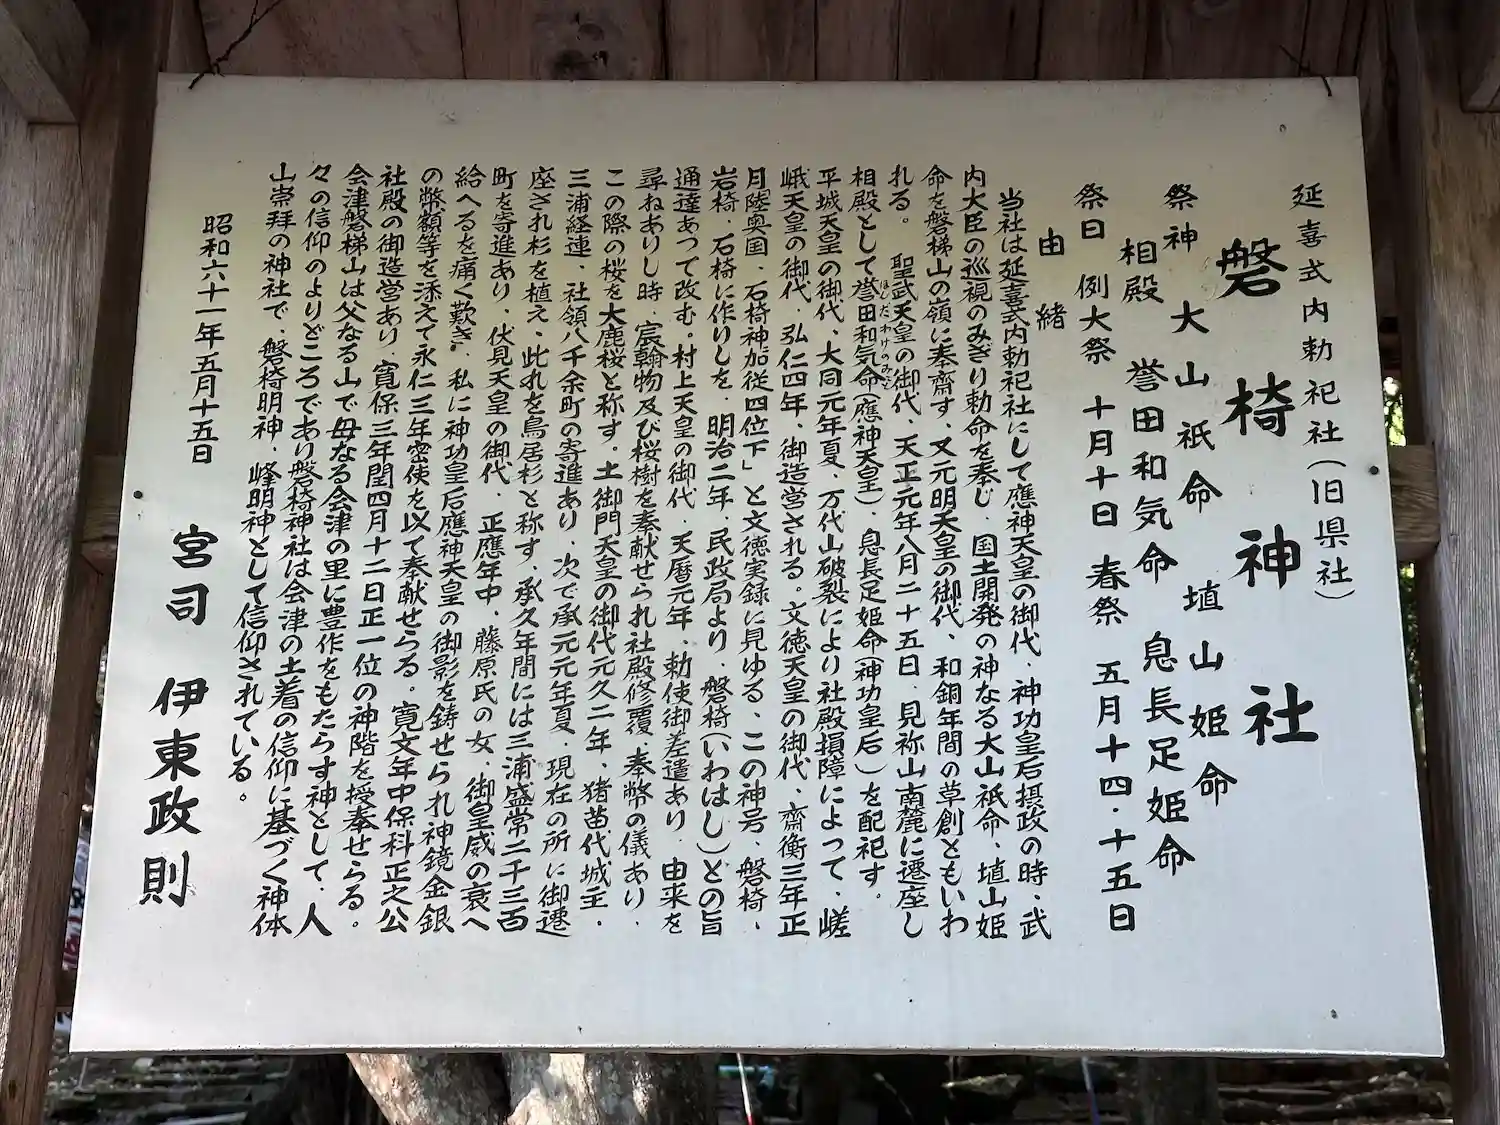 延喜式内勅祀社(旧県社)
磐椅神社
祭神 大山祇命 埴山姫命
相殿 誉田和気命 息長足姫命
祭日 例大祭 十月十日 春祭 五月十四・十五日
由緒
当社は延喜式内勅祀社にして應神天皇の御代、神功皇后摂政の時、武
内大臣の巡視のみぎり勅命を奉じ、国土開発の神なる大山祇命、埴山姫
命を磐梯山の嶺に奉齋す、又元明天皇の御代、和銅年間の草創ともいわ
れる。 聖武天皇の御代、天正元年八月二十五日、見祢山南麓に遷座し
相殿として誉田和気命(應神天皇)、息長足姫命(神功皇后)を配祀す。
ほんだわけのみこ
平城天皇の御代、大同元年夏、万代山破裂により社殿損障によって、嵯
峨天皇の御代、弘仁四年、御造営される。文徳天皇の御代、齋衡三年正
月陸奥国、石椅神加従四位下」と文徳実録に見ゆる、この神号、磐椅、
岩椅、石椅に作りしを、明治二年、民政局より、磐椅(いわはし)との旨
通達あつて改む。村上天皇の御代、天暦元年、勅使御差遣あり、由来を
尋ねありし時、宸翰物及び桜樹を奉献せられ社殿修覆、奉幣の儀あり、
この際の桜を大鹿桜と称す。土御門天皇の御代元久二年、猪苗代城主・
三浦経連、社領八千余町の寄進あり、次で承元元年夏、現在の所に御遷
座され杉を植え、此れを鳥居杉と称す、承久年間には三浦盛常二千三百
町を寄進あり、伏見天皇の御代、正應年中、藤原氏の女、御皇威の衰へ
給へるを痛く歎き、私に神功皇后應神天皇の御影を鋳せられ神鏡金銀
の幣額等を添えて永仁三年密使を以て奉献せらる。寛文年中保科正之公
社殿の御造営あり、寛保三年閏四月十二日正一位の神階を授奉せらる。
会津磐梯山は父なる山で母なる会津の里に豊作をもたらす神として、人
々の信仰のよりどころであり磐椅神社は会津の土着の信仰に基づく神体
山崇拝の神社で、磐椅明神、峰明神として信仰されている。
昭和六十一年五月十五日
宮司 伊東政則